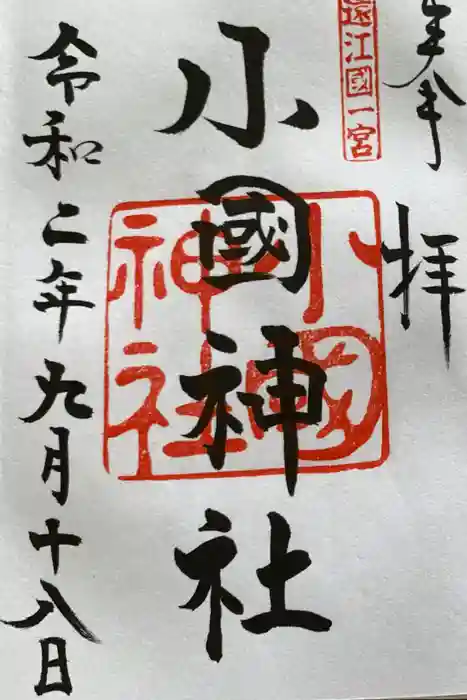 奉拝
遠江國一宮
小國神社
小國神社
令和二年九月十八日